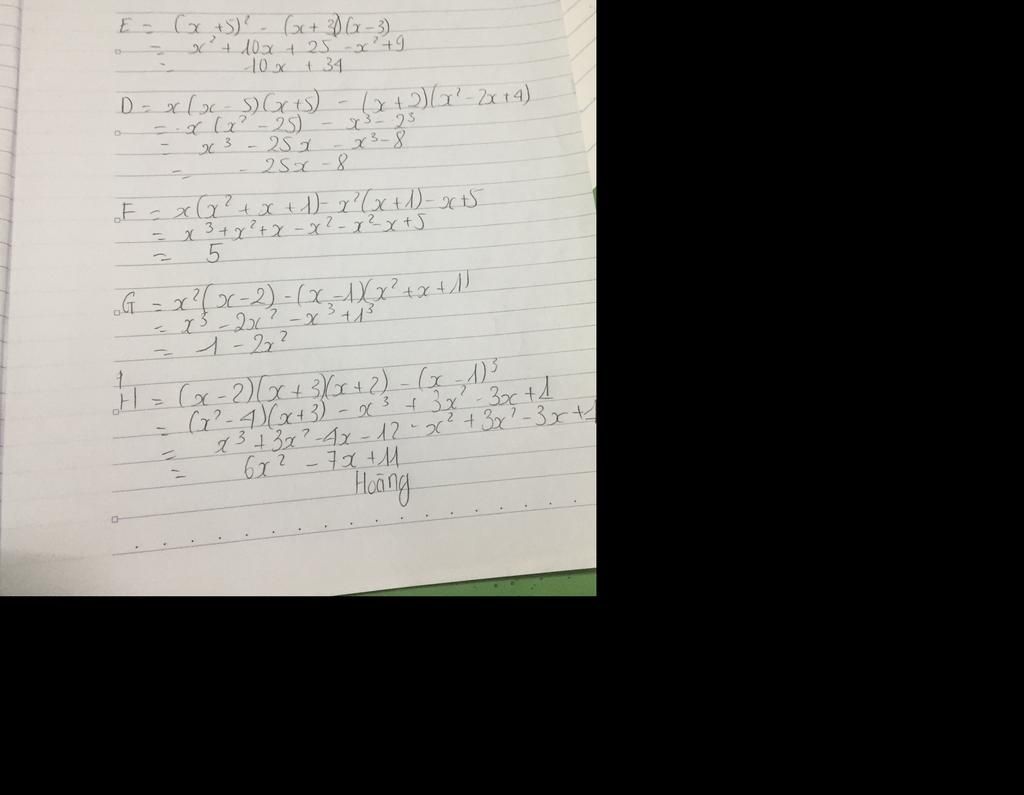 E = (x + 5)² - (x + 3)(x - 3)
= x² + 10x + 25 - x² + 9
= 10x + 34
D = x(x - 5)(x + 5) - (x + 2)(x² - 2x + 4)
= x(x² - 25) - x³ - 2³
= x³ - 25x - x³ - 8
= - 25x - 8
F = x(x² + x + 1) - x²(x + 1) - x + 5
= x³ + x² + x - x² - x² - x + 5
= 5
G = x²(x - 2) - (x - 1)(x² + x + 1)
= x³ - 2x² - x³ + 1³
= 1 - 2x²
H = (x - 2)(x + 3)(x + 2) - (x - 1)³
= (x² - 4)(x + 3) - x³ + 3x² - 3x + 1
= x³ + 3x² - 4x - 12 - x² + 3x² - 3x + 1
= 6x² - 7x + 11
Hoàng